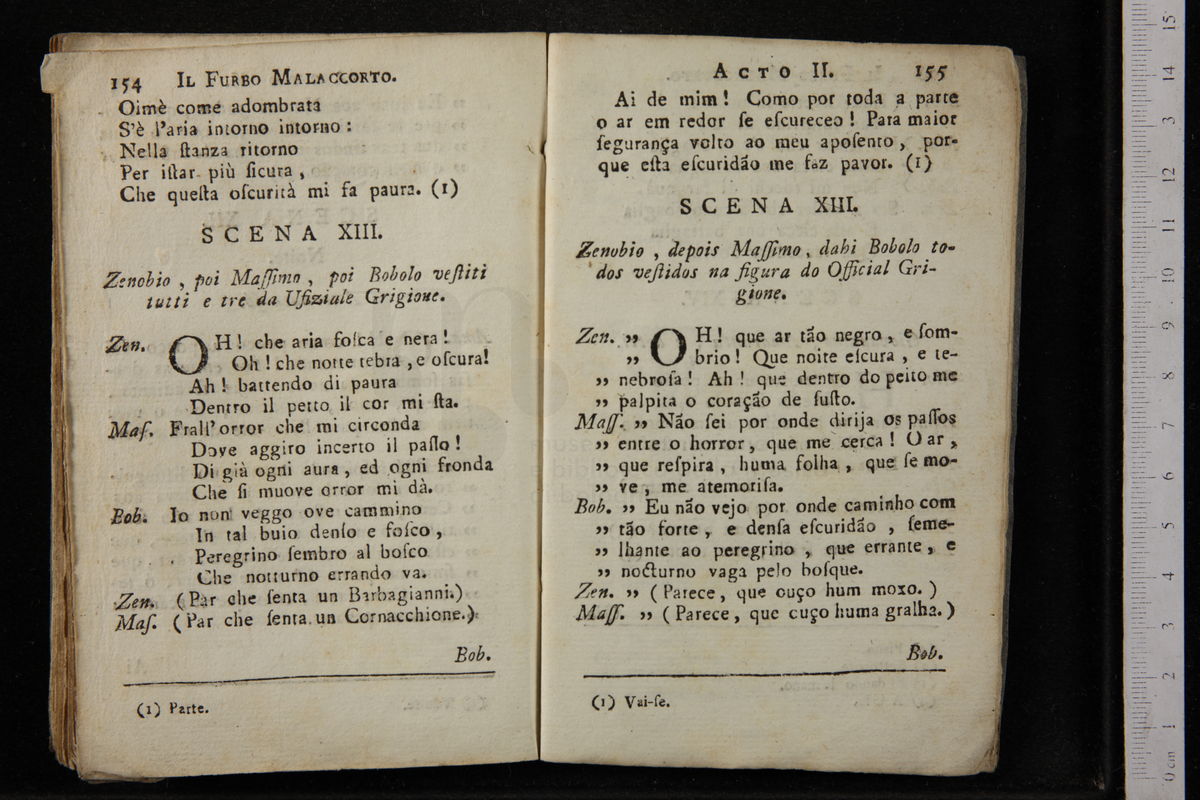 154 IL FURBO MALACCORTO.
Oimè come adombrata
S'è l'aria intorno intorno:
Nella ſtanza ritorno
Per iſtar più ſicura,
Che queſta oſcurità mi fa paura. (1)
SCENA XIII.
Zenobio, poi Maſſimo, poi Bobolo veſtiti
tutti e tre da Ufiziale Grigione.
Zen. OH! che aria foſca e nera!
Oh! che notte tebra, e oſcura!
Ah! battendo di paura
Dentro il petto il cor mi ſta.
Maſ. Frall'orror che mi circonda
Dove aggiro incerto il paſſo!
Di già ogni aura, ed ogni fronda
Che ſi muove orror mi dà.
Bob. Io non veggo ove cammino
In tal buio denſo e foſco,
Peregrino ſembro al boſco
Che notturno errando va.
Zen. (Par che ſenta un Barbagianni.)
Maſ. (Par che ſenta un Cornacchione.)
Bob.
(1) Parte.
ACTO II. 155
Ai de mim! Como por toda a parte
o ar em redor ſe eſcureceo! Para maior
ſegurança volto ao meu apoſento, por-
que eſta eſcuridão me faz pavor. (1)
SCENA XIII.
Zenobio, depois Maſſimo, dahi Bobolo to-
dos veſtidos na figura do Official Gri-
gione.
Zen. ,, OH! que ar tão negro, e ſom-
,, brio! Que noite eſcura, e te-
,, nebroſa! Ah! que dentro do peito me
,, palpita o coração de ſuſto.
Maſſ. ,, Não ſei por onde dirija os paſſos
,, entre o horror, que me cerca! O ar,
,, que reſpira, huma folha, que ſe mo-
,, ve, me atemoriſa.
Bob. ,, Eu não vejo por onde caminho com
,, tão forte, e denſa eſcuridão, ſeme-
,, lhante ao peregrino, que errante, e
,, nocturno vaga pelo boſque.
Zen. ,, (Parece, que ouço hum moxo.)
Maſſ. ,, (Parece, que ouço huma gralha.)
Bob.
(1) Vai-ſe.
0 cm 1 2 3 4 5 6 7 8 9 10 11 12 13 14 15